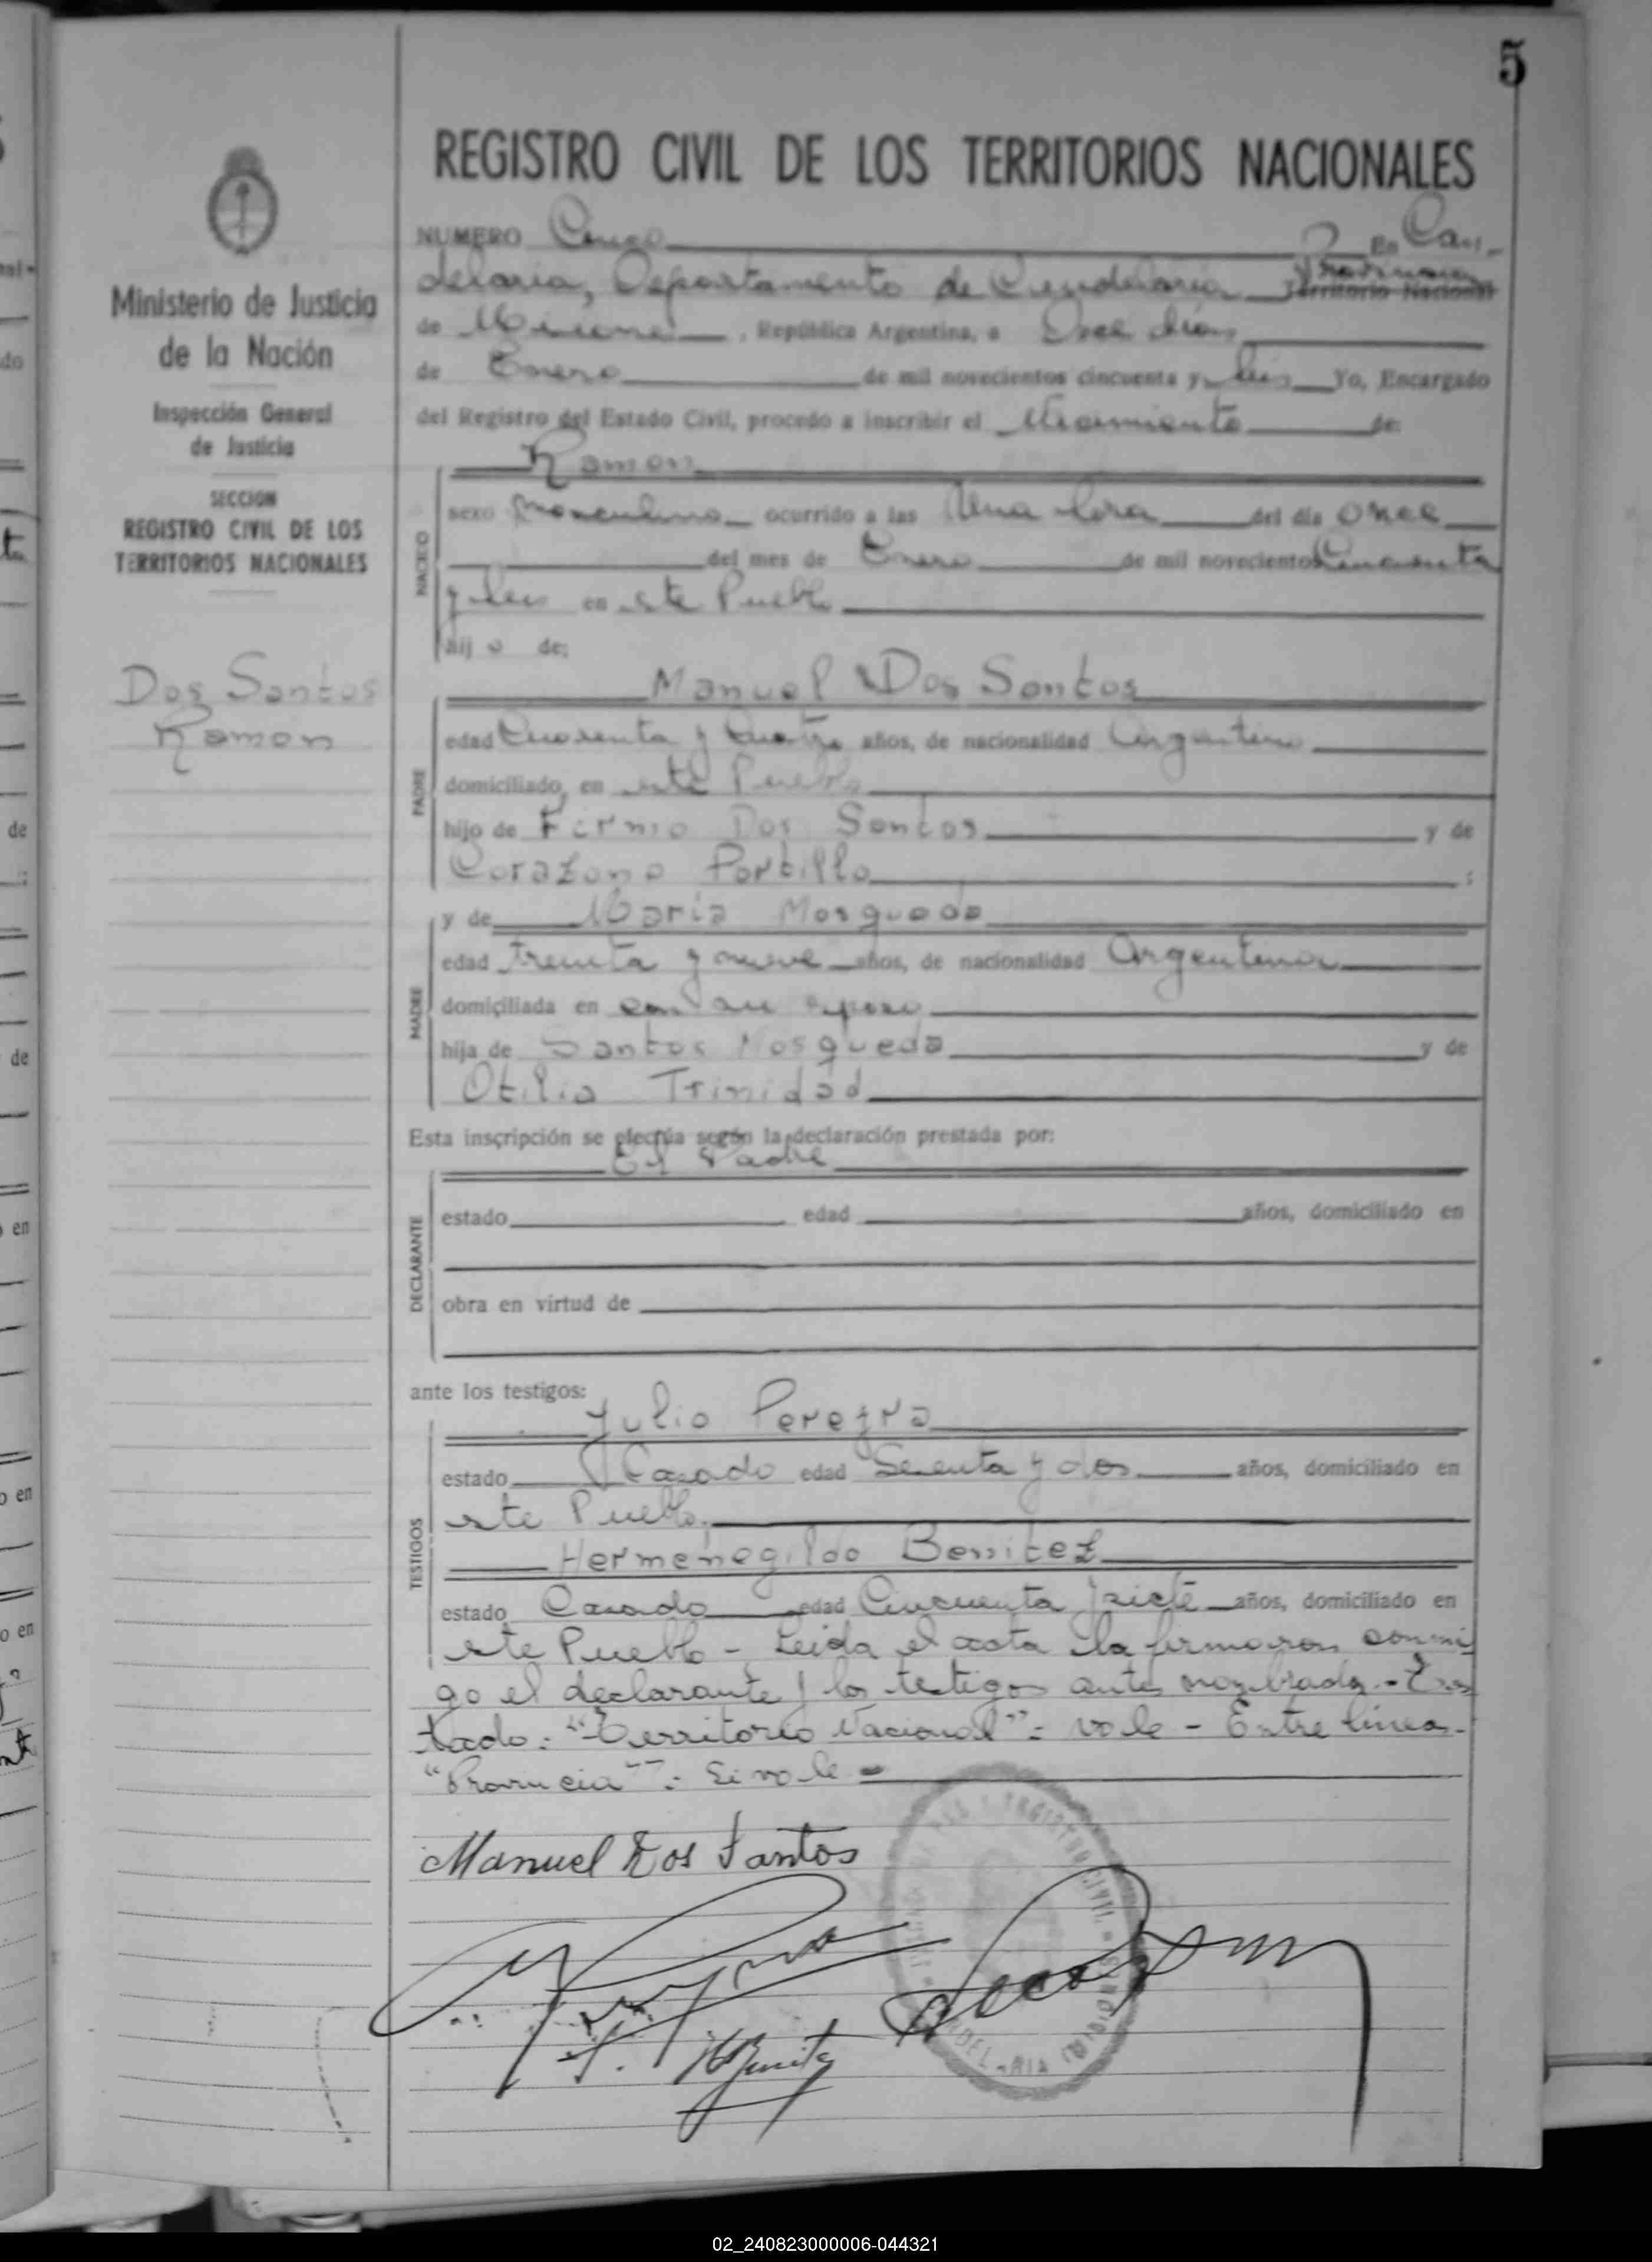 5
REGISTRO CIVIL DE LOS TERRITORIOS NACIONALES
Ministerio de Justicia
de la Nación
Inspección General
de Justicia
SECCION
REGISTRO CIVIL DE LOS
TERRITORIOS NACIONALES
Dos Santos
Ramon
NUMERO Cinco En Can-
delaria, Departamento de Candelaria Provincia Territorio Nacional
de Misiones, República Argentina, a Once días
de Enero de mil novecientos cincuenta y seis Yo, Encargado
del Registro del Estado Civil, procedo a inscribir el Nacimiento de:
Ramon
NACIDO
sexo masculino ocurrido a las Una hora del día once
del mes de Enero de mil novecientos Cincuenta
y seis en este Pueblo
hijo de:
Manuel Dos Santos
PADRE
edad Cuarenta y Cuatro años, de nacionalidad Argentino
domiciliado en este Pueblo
hijo de Firmo Dos Santos y de
Corazona Portillo :
MADRE
y de María Mosqueda
edad treinta y nueve años, de nacionalidad Argentina
domiciliada en con su esposo
hija de Santos Mosqueda y de
Otilia Trinidad
Esta inscripción se efectúa según la declaración prestada por:
El Padre
DECLARANTE
estado edad años, domiciliado en
obra en virtud de
ante los testigos:
Julio Pereyra
TESTIGOS
estado Casado edad y dos años, domiciliado en
este Pueblo.
Hermenegildo Benitez
estado Casado edad Cincuenta y siete años, domiciliado en
este Pueblo - Leida el acta la firmaron conmi
go el declarante y los testigos antes nombrados.- Tes
tado: "Territorio Nacional": vale - Entre lineas-
"Provincia": Si vale
Manuel Dos Santos
REGISTRO CIVIL
02_240823000006-044321